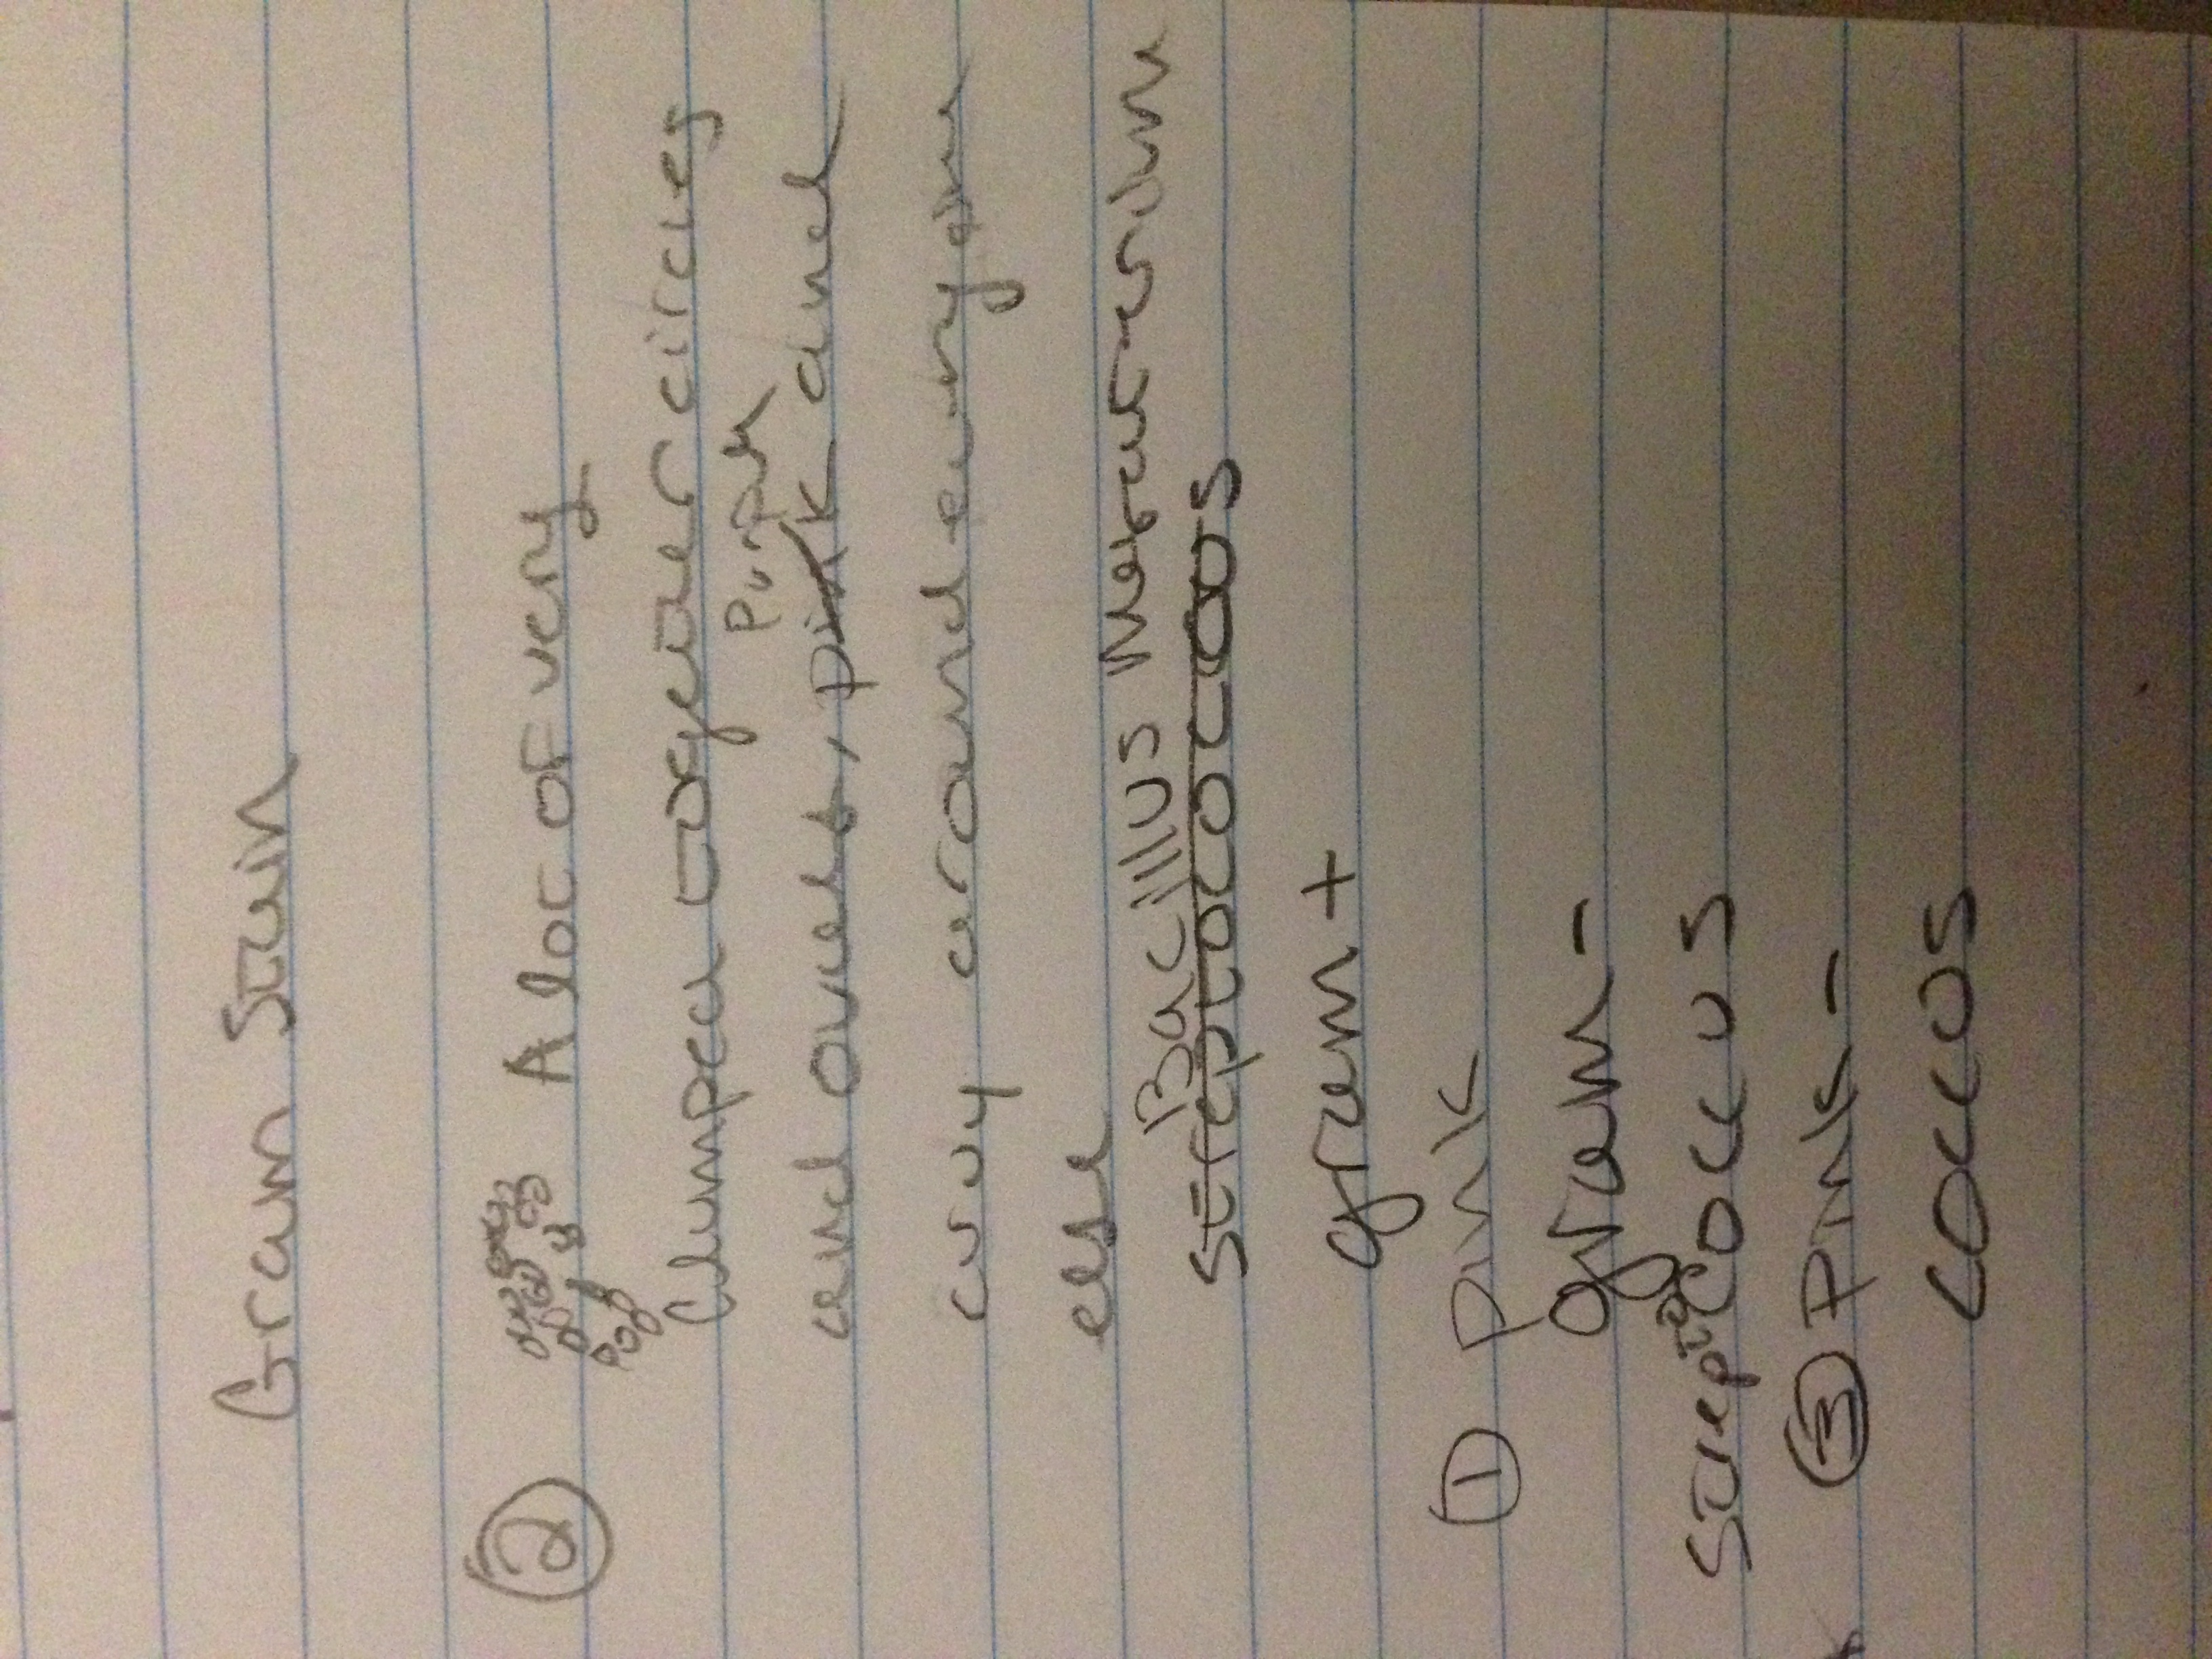 Gram Stain
② A lot of very
clumped together circles
Purple
and ovals, pink and
curvy around every one
else
Bacillus
streptococcus
gram +
① Pink
gram -
strepto coccus
③ Pink -
coccus